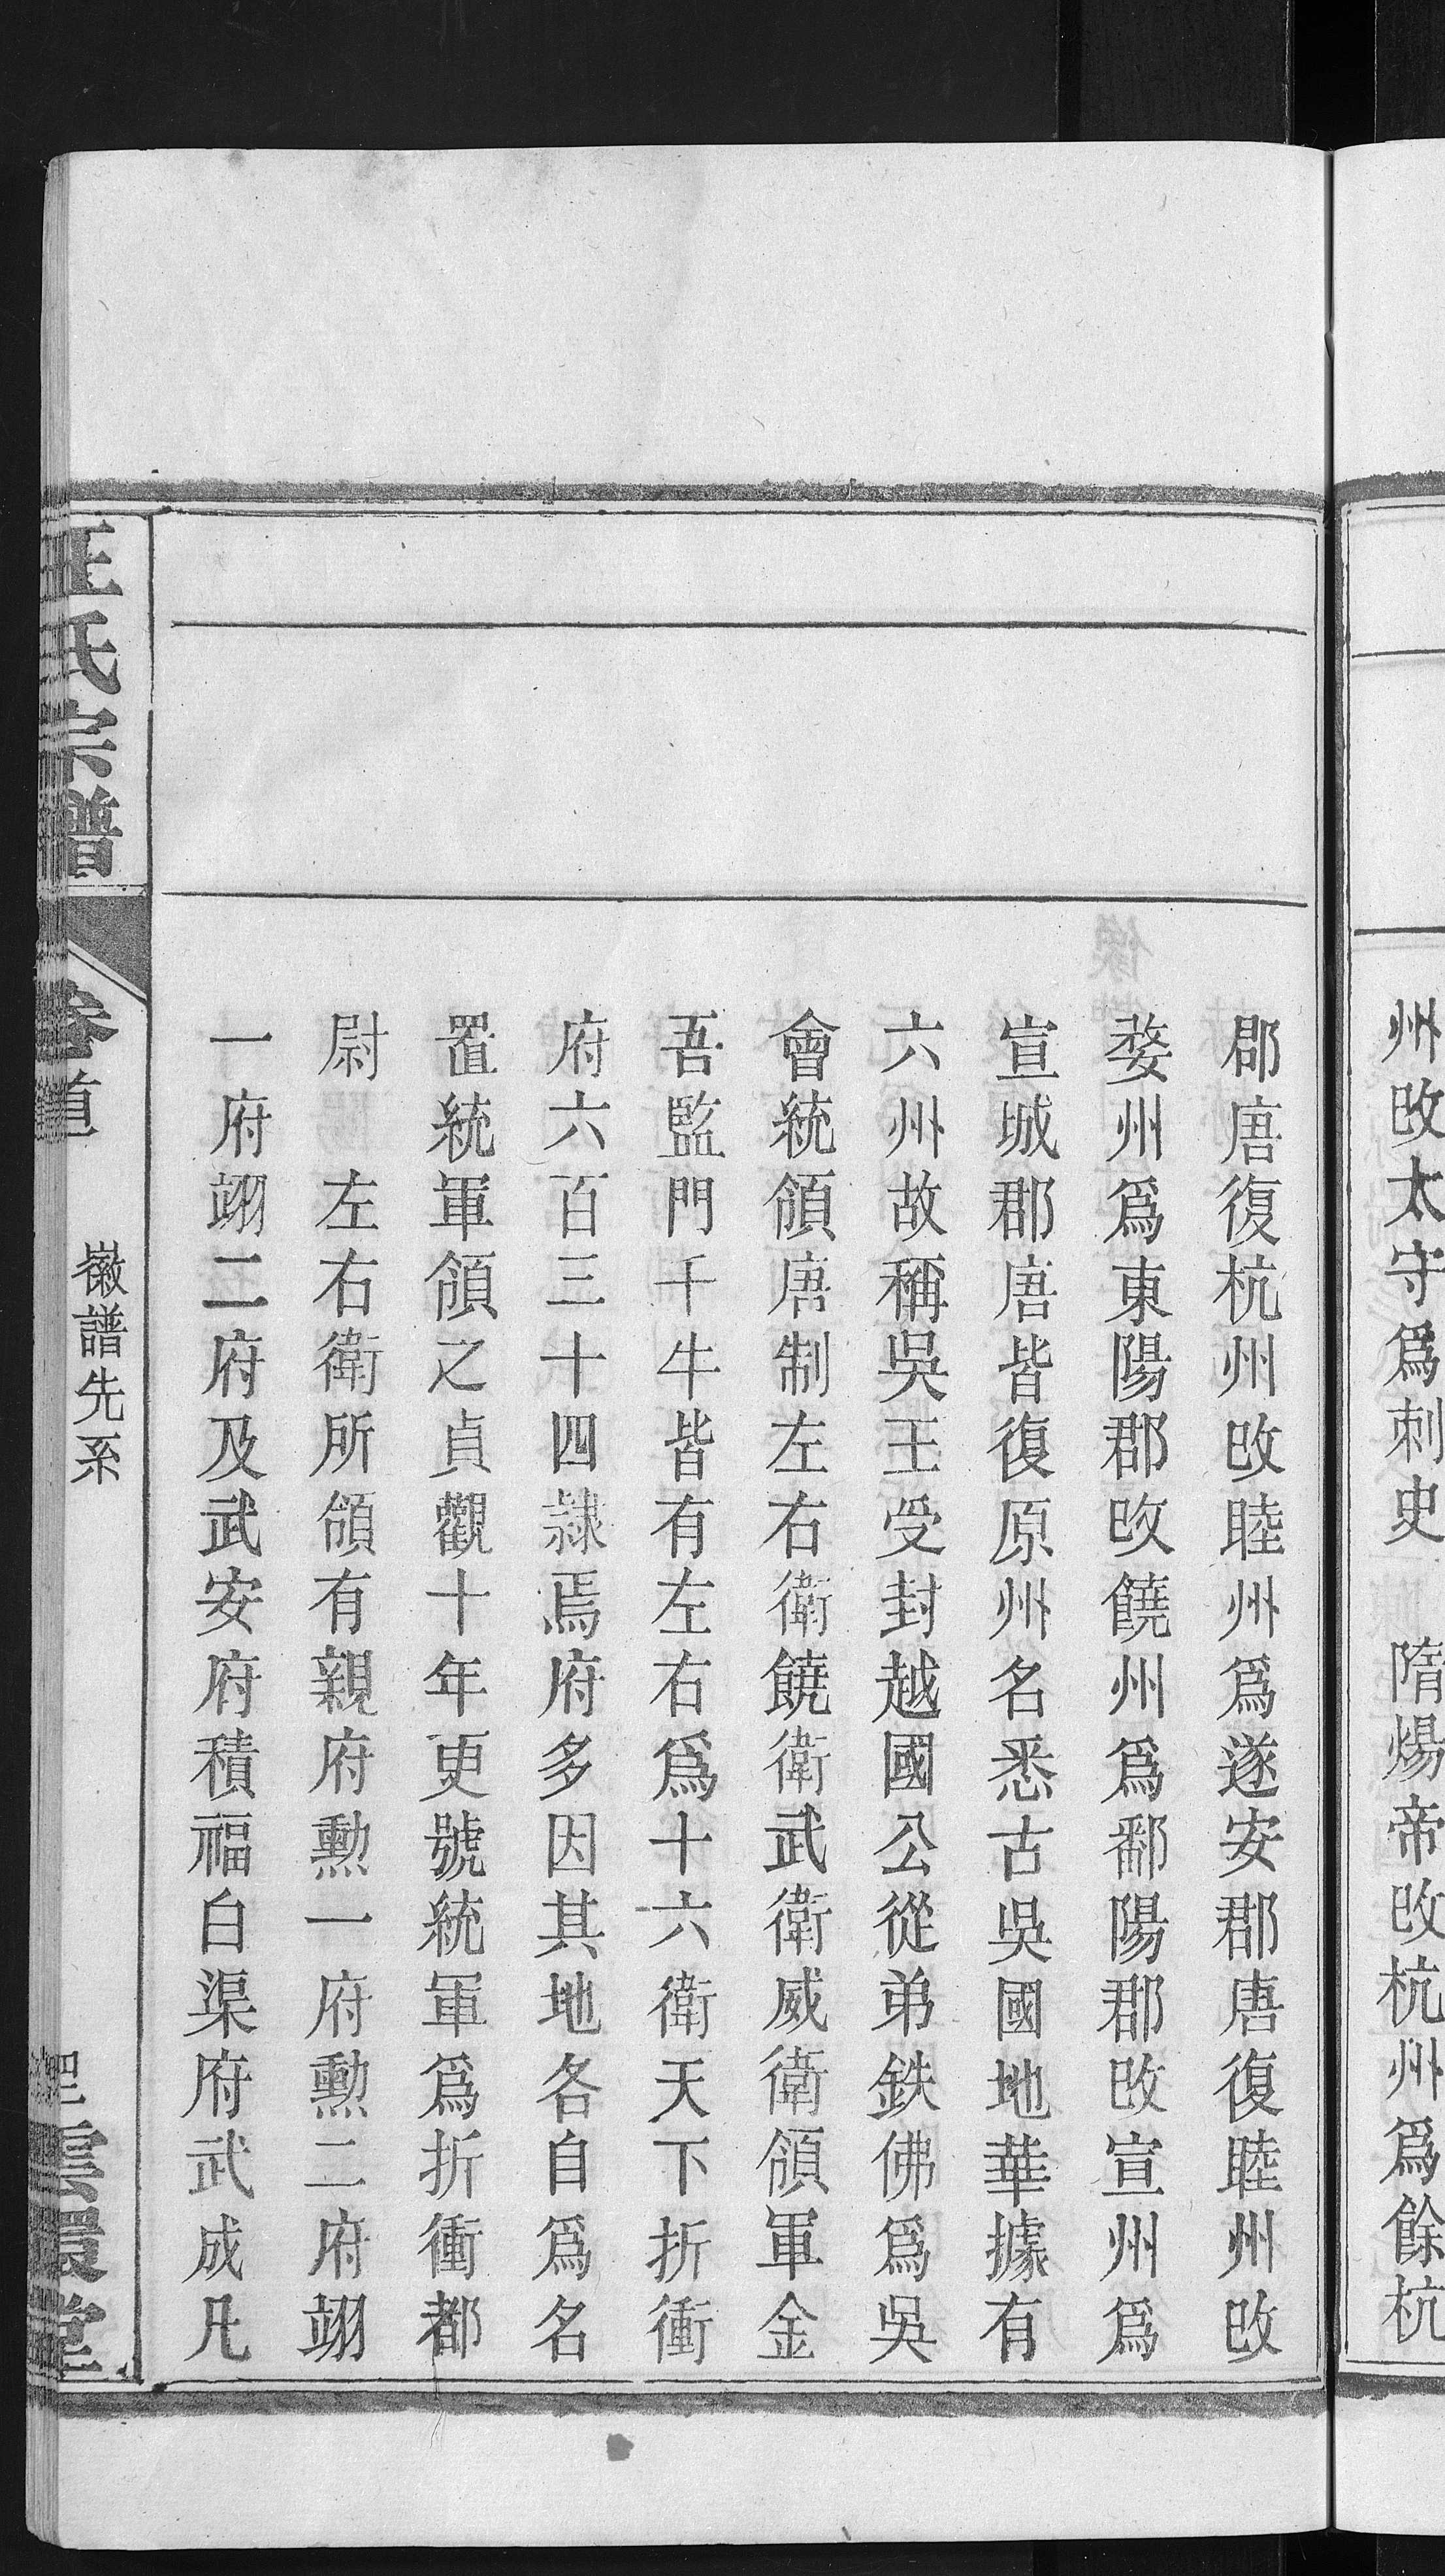 州攺太守爲刺史　隋煬帝攺杭州爲餘杭
郡唐復杭州攺睦州爲遂安郡唐復睦州攺
婺州爲東陽郡攺饒州爲鄱陽郡攺宣州爲
宣城郡唐皆復原州名悉古吳國地華據有
六州故稱吳王受封越國公從弟鉄佛爲吳
會統領唐制左右衛饒衛武衛威衛領軍金
吾監門千牛皆有左右爲十六衛天下折衝
府六百三十四隷焉府多因其地各自爲名
置統軍領之貞觀十年更號統軍爲折衝都
尉　左右衛所領有親府勲一府勲二府翊
一府翊二府及武安府積福白渠府武成凡
汪氏宗譜
卷首
徽譜先系
雲環堂